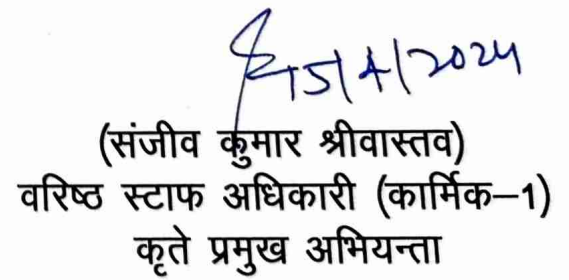 15/4/2024
(संजीव कुमार श्रीवास्तव)
वरिष्ठ स्टाफ अधिकारी (कार्मिक–1)
कृते प्रमुख अभियन्ता